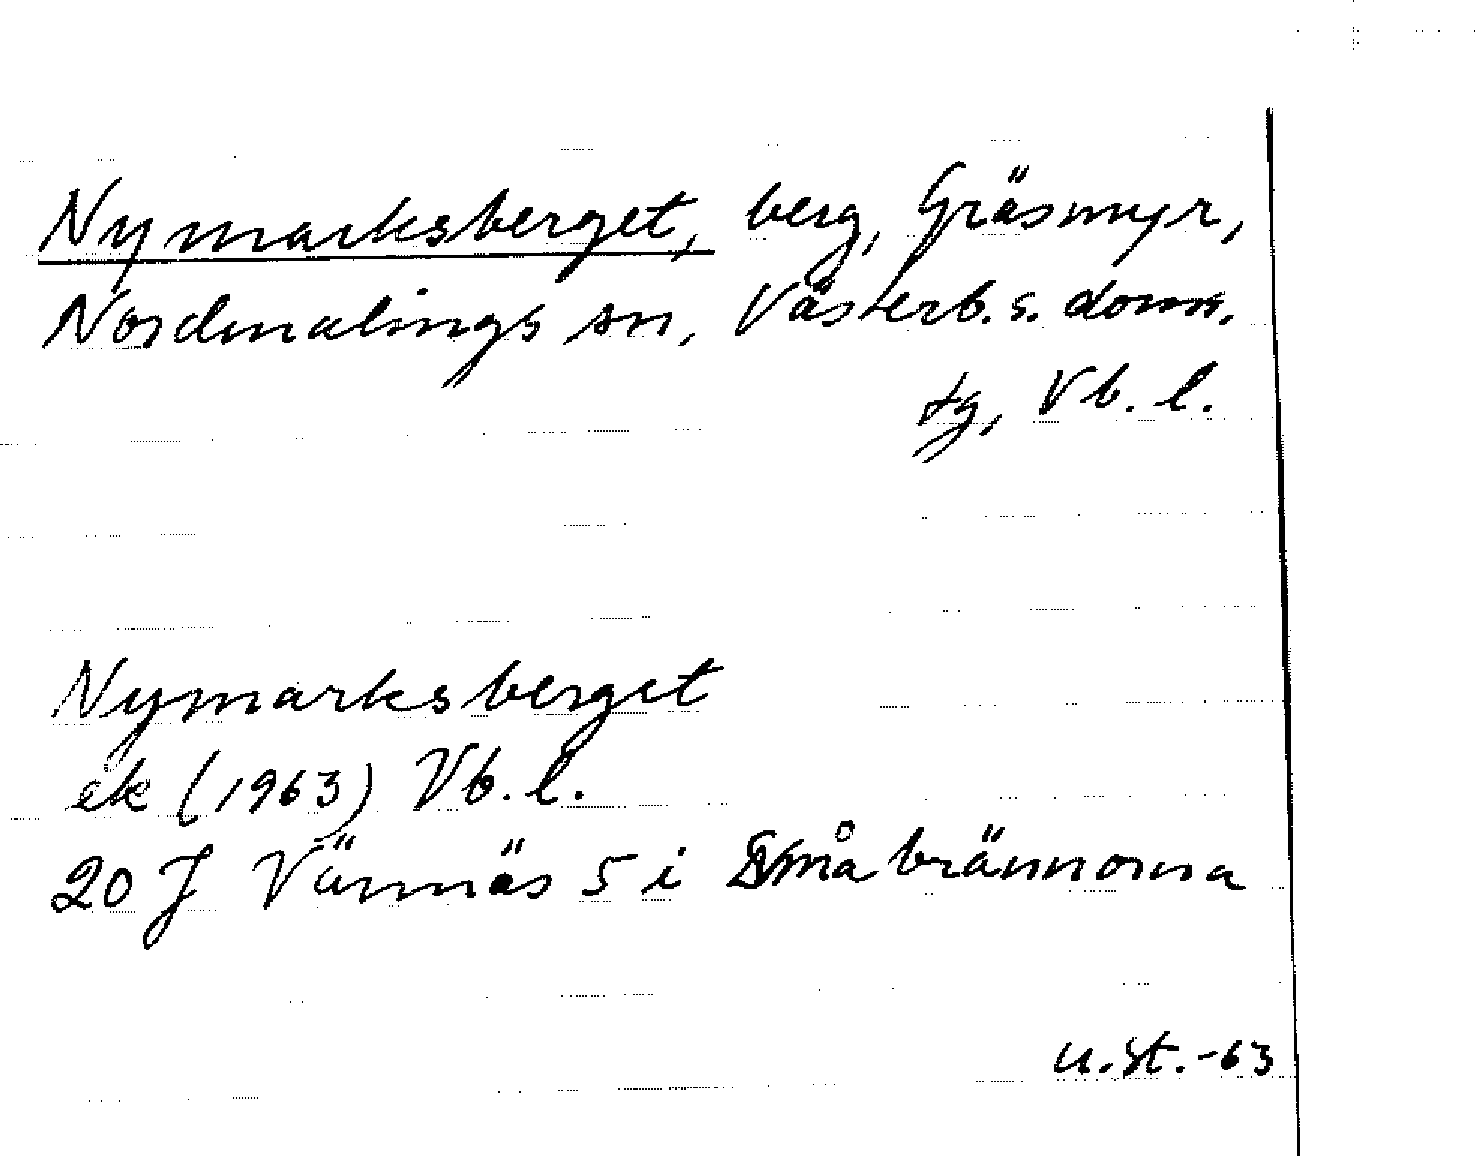 Nymarksberget, berg, Gräsmyr,
Nordmalings sn, Västerb. s. doms.
tg, Vb. l.
Nymarksberget
ek (1963) Vb. l.
20 J Värnäs 5 i Småbrännorna
u. st. -63